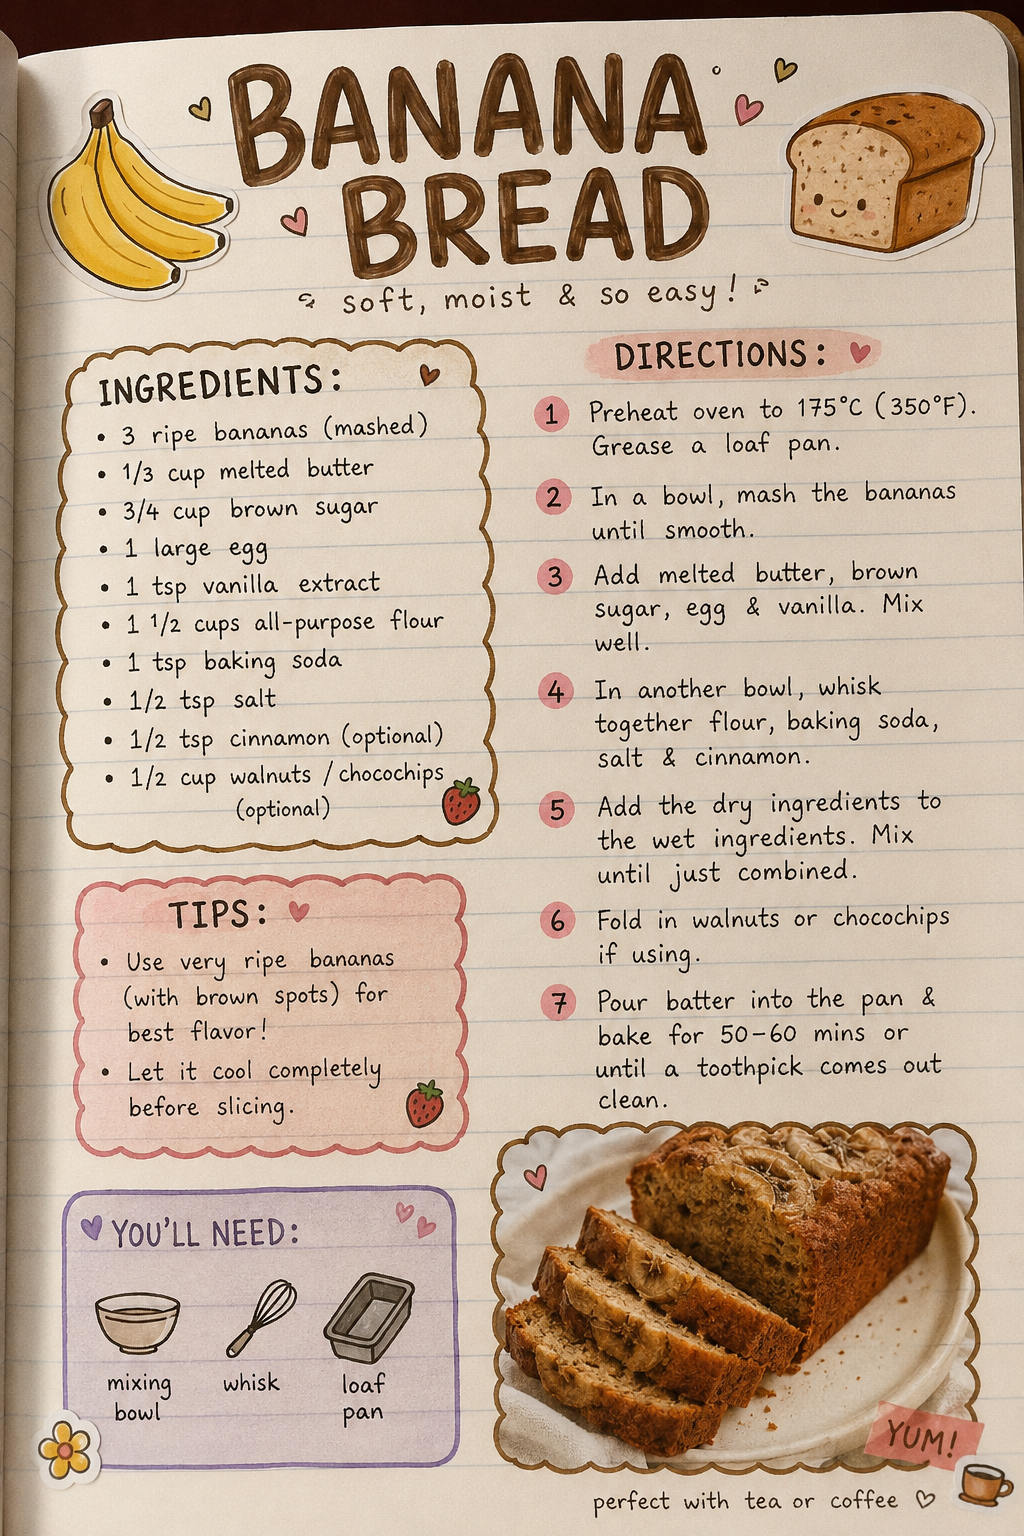 BANANA
BREAD
soft, moist & so easy!
INGREDIENTS:
• 3 ripe bananas (mashed)
• 1/3 cup melted butter
• 3/4 cup brown sugar
• 1 large egg
• 1 tsp vanilla extract
• 1 1/2 cups all-purpose flour
• 1 tsp baking soda
• 1/2 tsp salt
• 1/2 tsp cinnamon (optional)
• 1/2 cup walnuts / chocochips
(optional)
TIPS:
• Use very ripe bananas
(with brown spots) for
best flavor!
• Let it cool completely
before slicing.
YOU'LL NEED:
mixing
bowl
whisk
loaf
pan
DIRECTIONS:
1 Preheat oven to 175°C (350°F).
Grease a loaf pan.
2 In a bowl, mash the bananas
until smooth.
3 Add melted butter, brown
sugar, egg & vanilla. Mix
well.
4 In another bowl, whisk
together flour, baking soda,
salt & cinnamon.
5 Add the dry ingredients to
the wet ingredients. Mix
until just combined.
6 Fold in walnuts or chocochips
if using.
7 Pour batter into the pan &
bake for 50–60 mins or
until a toothpick comes out
clean.
YUM!
perfect with tea or coffee ♡